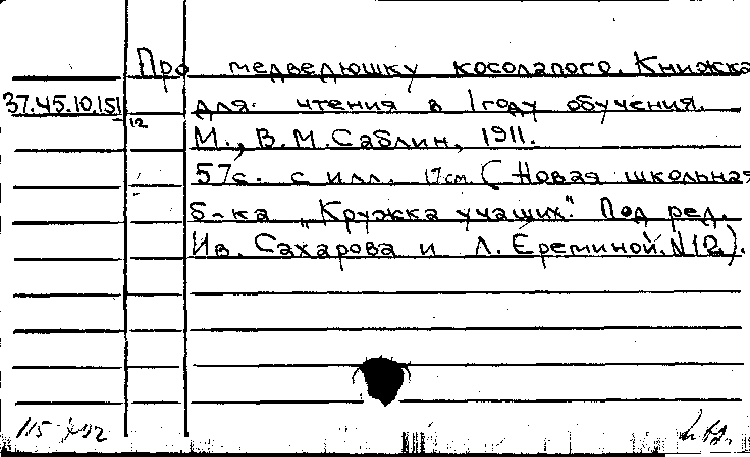 Про медведюшку косолапого. Книжка
37.45.10.151 для чтения в 1 году обучения.
12
М., В.М. Саблин, 1911.
57с. с илл. 17см (Новая школьная
б-ка „Кружка учащих". Под ред.
Ив. Сахарова и Л. Ереминой. N12).
115